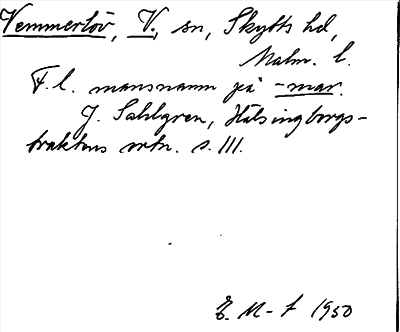 Vemmerlöv, V., sn, Skytts hd,
Malm. l.
F. l. mansnamn på -mar.
J. Sahlgren, Hälsingborgs-
traktens ortn. s. III.
E. M-f 1950